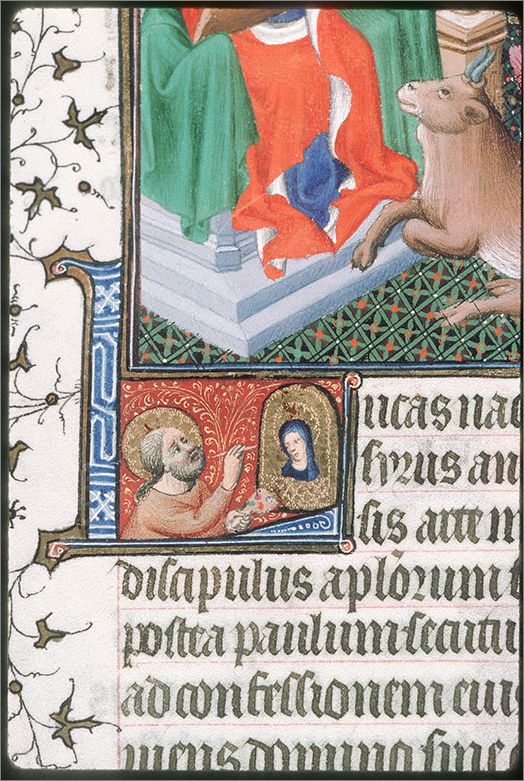 Lucas nac
syrus an
sis arte m
discipulus aplorum
postea paulum secutu
ad confessionem eiu
uiens domino sine